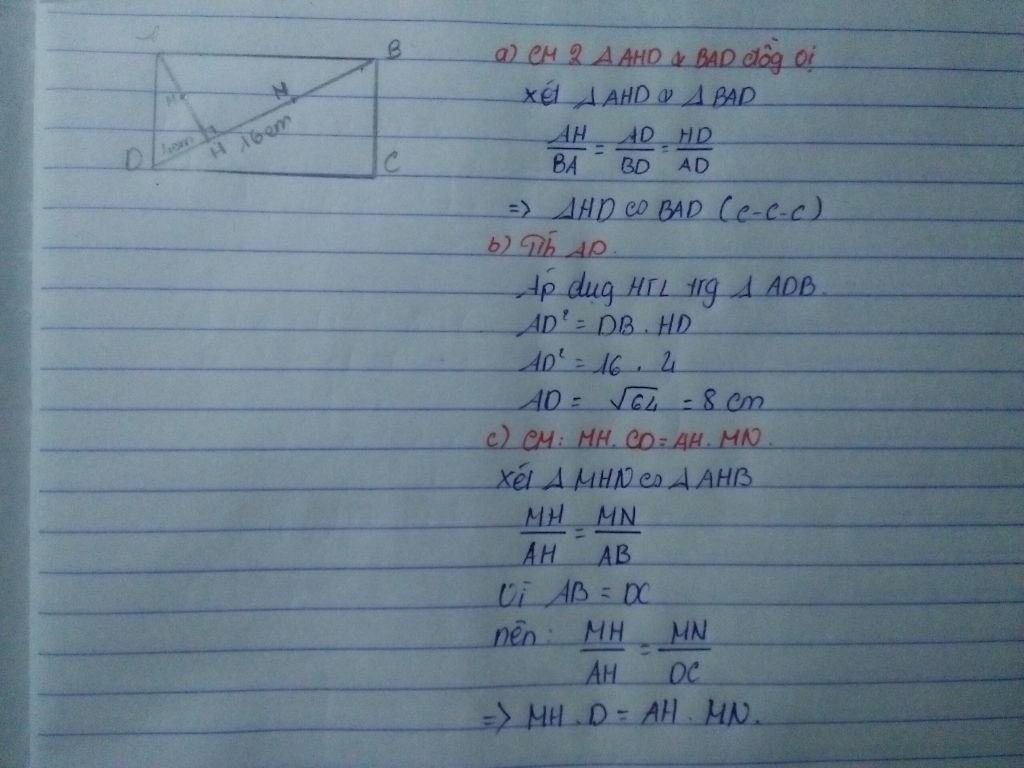 A
B
M
N
H
16cm
D
C
a) CM 2 Δ AHD & BAD đồg dị
Xét Δ AHD & Δ BAD
AH/BA = AD/BD = HD/AD
=> ΔHD ∽ BAD (c-c-c)
b) Tíh AD.
Áp dụg HTL trg Δ ADB.
AD² = DB . HD
AD² = 16 . 4
AD = √64 = 8 cm
c) CM: MH. CD = AH. MN.
Xét Δ MHN ∽ Δ AHB
MH/AH = MN/AB
Vì AB = DC
nên: MH/AH = MN/DC
=> MH . D = AH . MN.